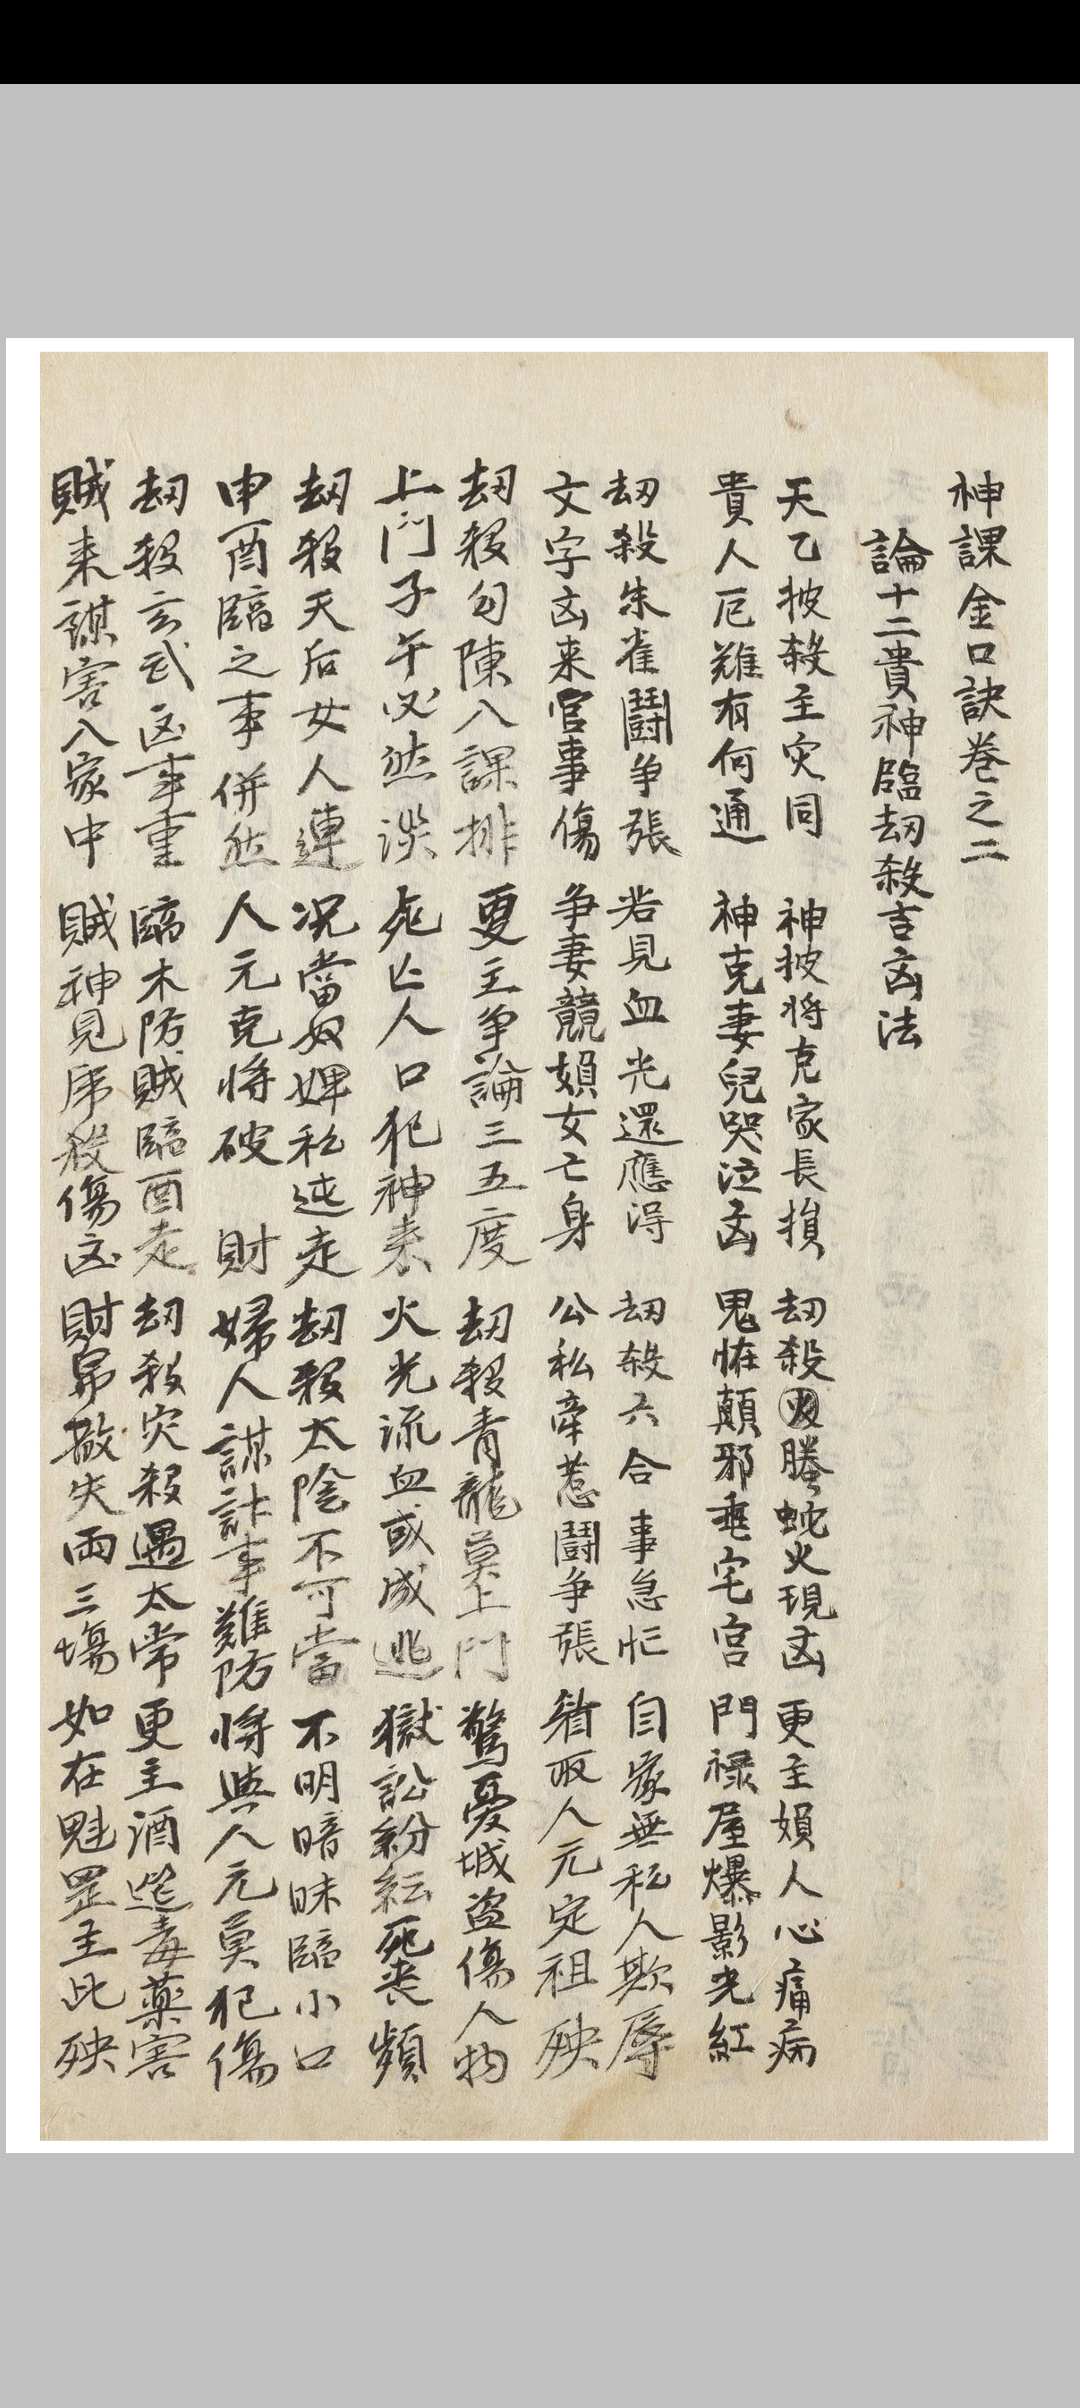 神課金口訣卷之二
論十二貴神臨劫殺吉凶法
天乙披殺主灾同 神披将克家長損 劫殺螣蛇火現凶 更主損人心痛病
貴人厄難有何通 神克妻兒哭泣凶 鬼怪顛邪乖宅宮 門祿屋爆影光紅
劫殺朱雀鬪争張 若見血光還應得 劫殺六合事急忙 自家無私人欺辱
文字凶来官事傷 争妻競損女亡身 公私牵惹鬪争張 取人元定祖殃
劫殺勾陳入課排 更主争論三五度 劫殺青龍莫上門 驚憂城盗傷人物
上門子午必然災 死亡人口犯神来 火光流血或成逃 獄訟紛紜死喪頻
劫殺天后女人連 况當奴婢私逃走 劫殺太陰不可當 不明暗昧臨小口
申酉臨之事併然 人元克将破財 婦人謀計事難防 将與人元莫犯傷
劫殺玄武凶事重 臨木防賊臨酉走 劫殺灾殺遇太常 更主酒筵毒藥害
賊来謀害入家中 賊神見虎殺傷凶 財帛散失兩三塲 如在魁罡主此殃